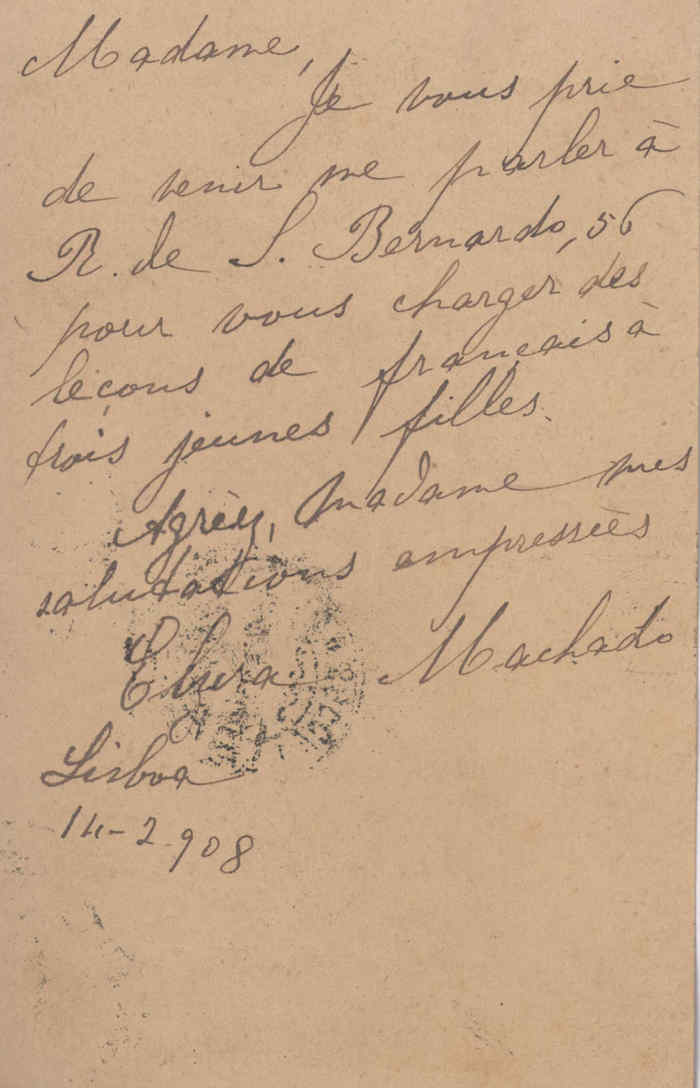 Madame,
Je vous prie
de venir me parler à
R. de S. Bernardo, 56
pour vous charger des
leçons de français à
trois jeunes filles.
Agrèz, madame mes
salutations empressèes
Machado
Lisboa
14-2-908